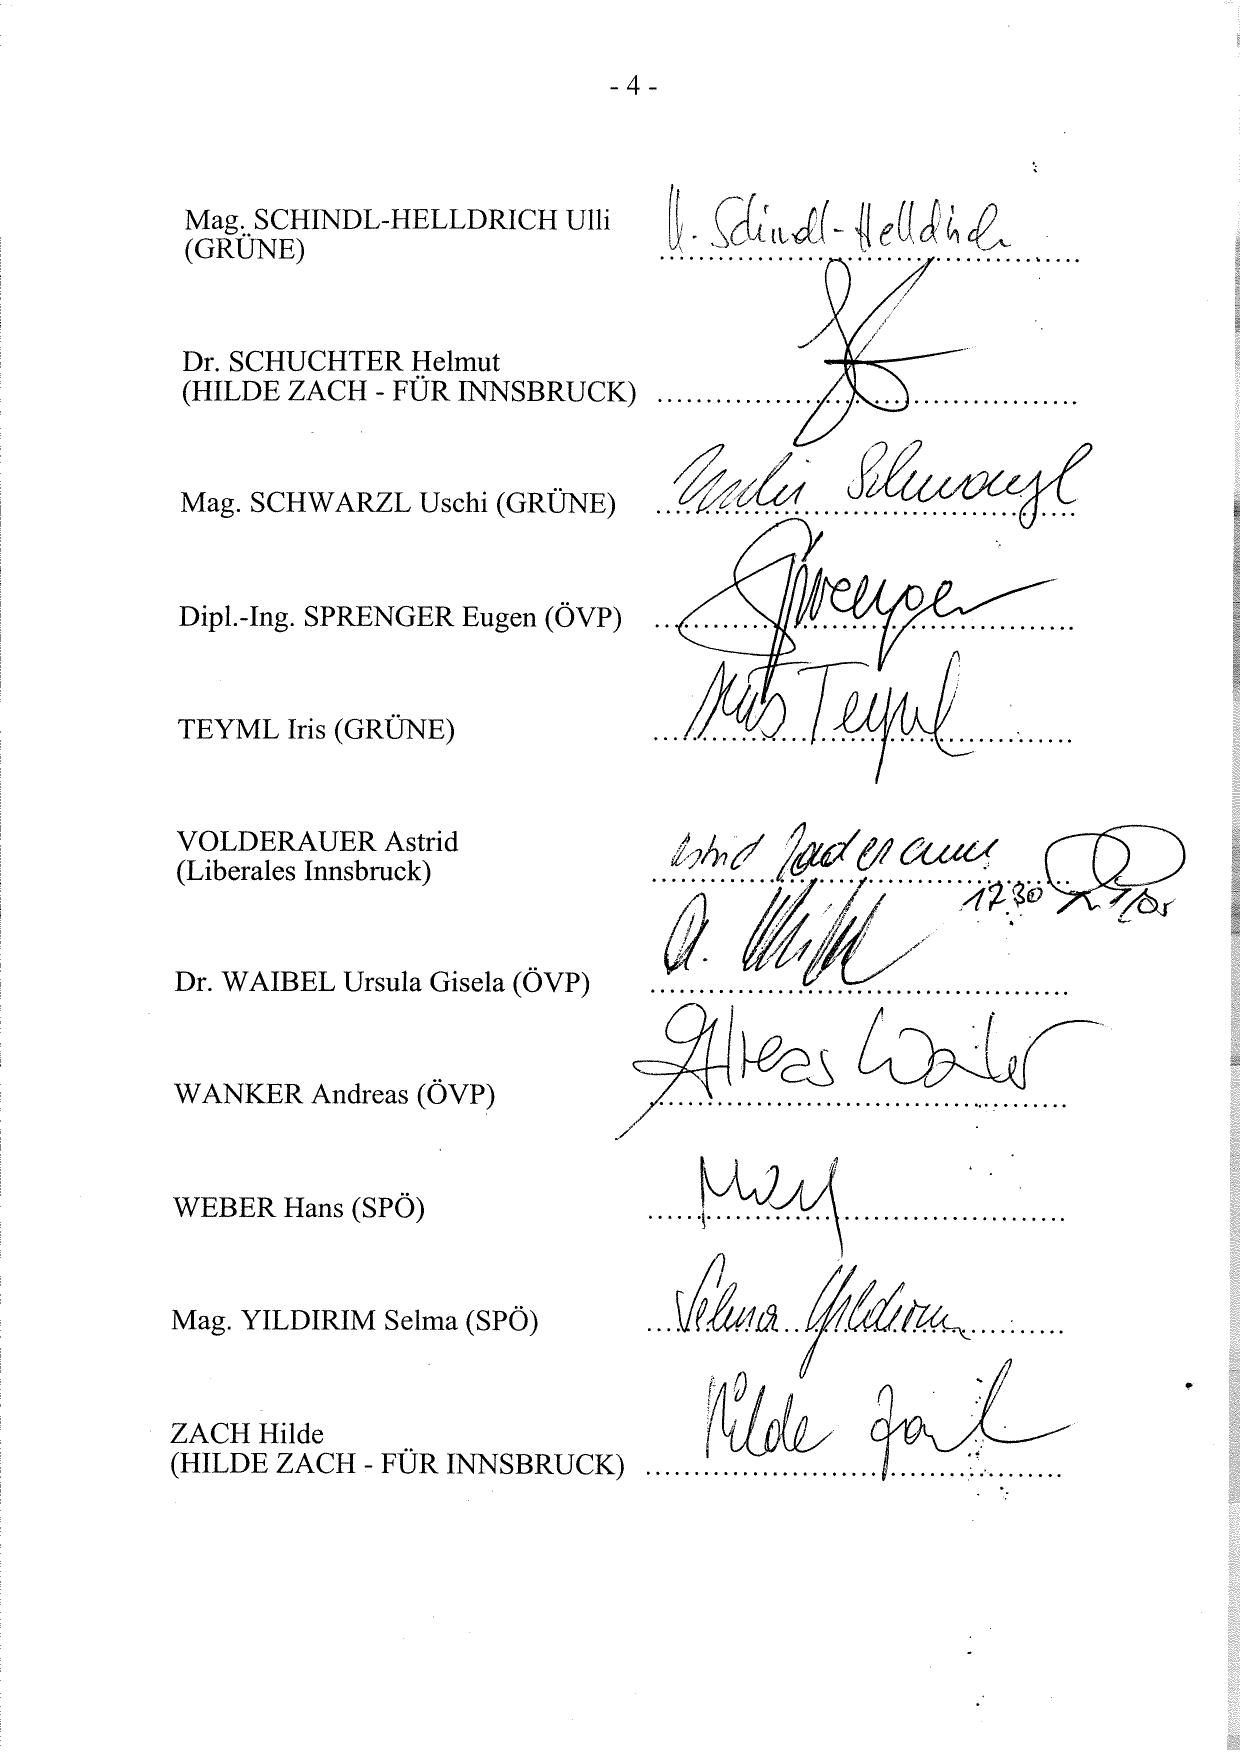 - 4 -
Mag. SCHINDL-HELLDRICH Ulli U. Schindl-Helldrich
(GRÜNE) ..........................................
Dr. SCHUCHTER Helmut
(HILDE ZACH - FÜR INNSBRUCK) ..........................................
Mag. SCHWARZL Uschi (GRÜNE) Uschi Schwarzl
Dipl.-Ing. SPRENGER Eugen (ÖVP) Sprenger
TEYML Iris (GRÜNE) Iris Teyml
VOLDERAUER Astrid Astrid Volderauer
(Liberales Innsbruck) ..........................................
17.30
Dr. WAIBEL Ursula Gisela (ÖVP) ..........................................
WANKER Andreas (ÖVP) Andreas Wanker
WEBER Hans (SPÖ) ..........................................
Mag. YILDIRIM Selma (SPÖ) Selma Yildirim
ZACH Hilde Hilde Zach
(HILDE ZACH - FÜR INNSBRUCK) ..........................................